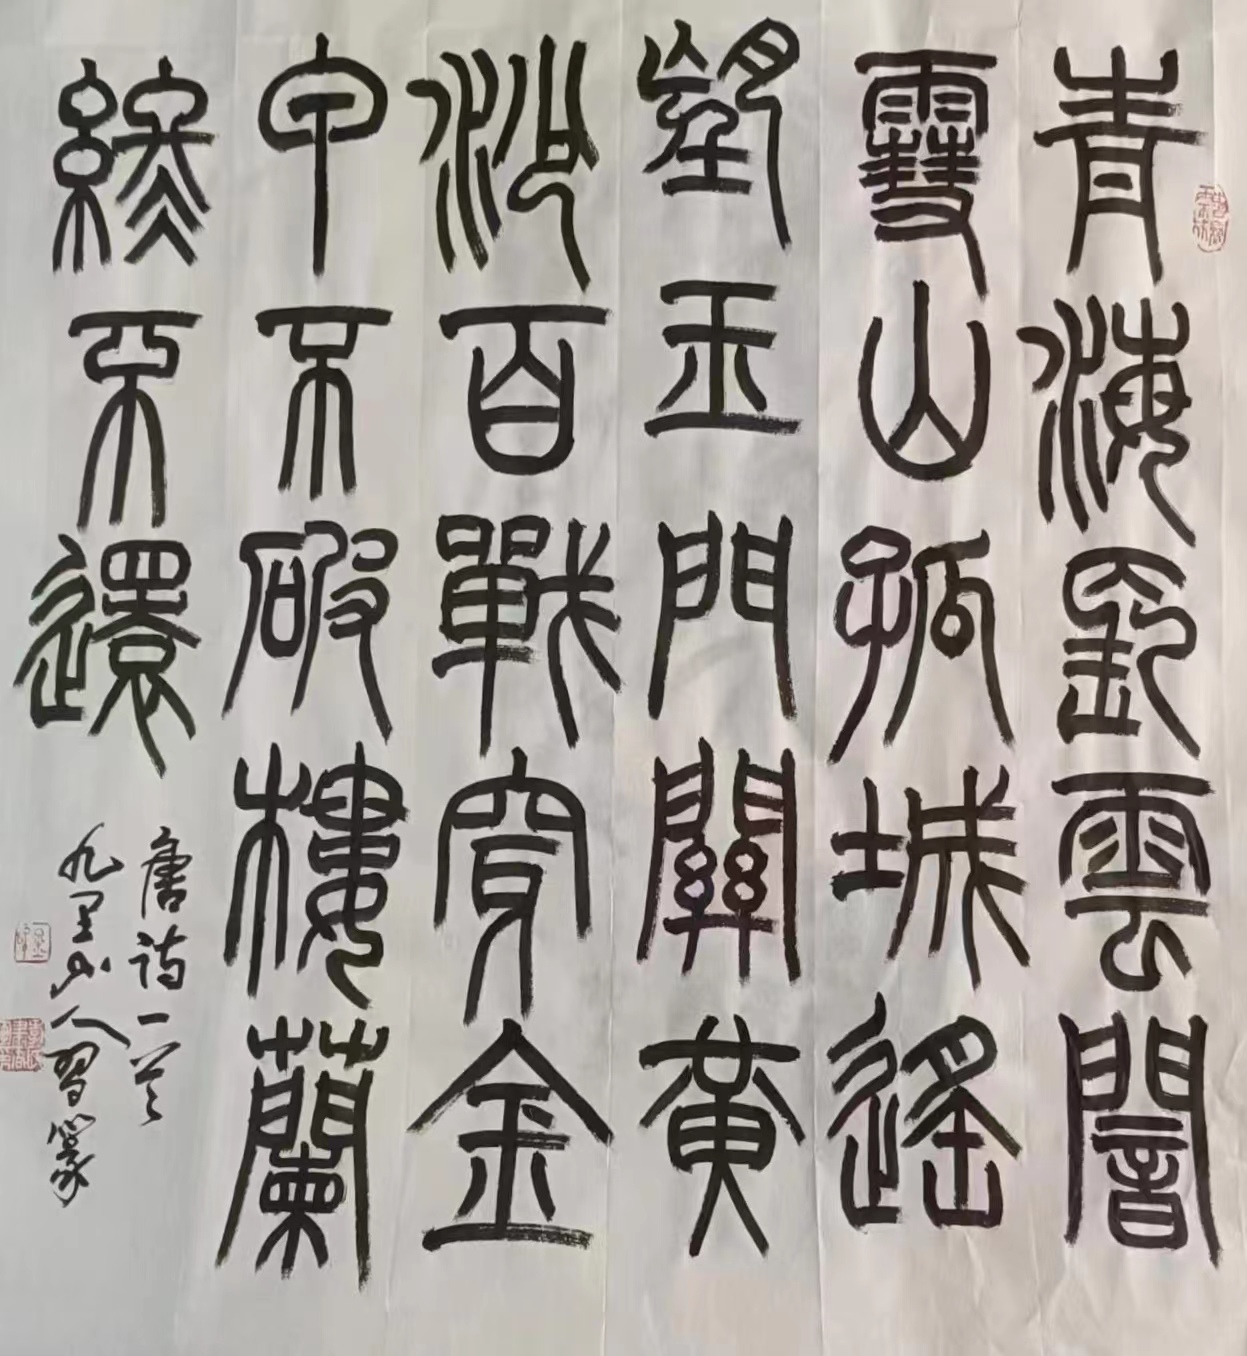 青海長雲闇
雪山孤城遙
望玉門關黃
沙百戰穿金
甲不破樓蘭
終不還
唐詩一首
九里山人習篆